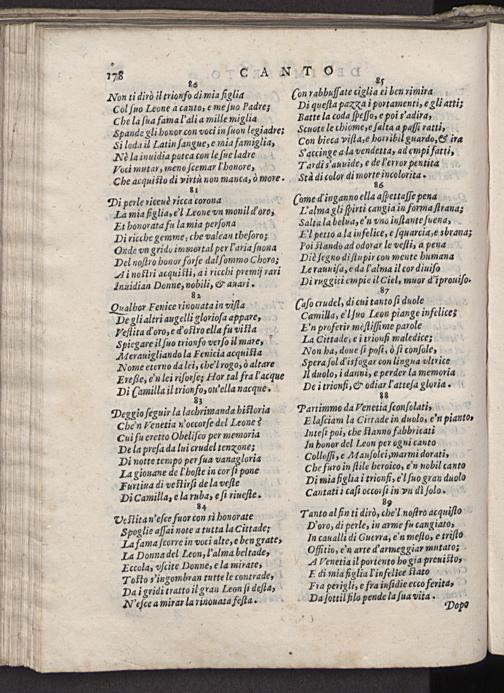 178 CANTO
80
Non ti dirò il trionfo di mia figlia
Col suo Leone à canto, e me suo Padre;
Che la sua fama l'ali a mille miglia
Spande gli honor con voci in suon legiadre;
Si loda il Latin sangue, e mia famiglia,
Nè la inuidia potea con le sue ladre
Voci mutar, meno scemar l'honore,
Che acquisto di virtù non manca, ò more.
81
Di perle riceuè ricca corona
La mia figlia, e'l Leone vn monil d'oro,
Et honorata fu la mia persona
Di ricche gemme, che valean thesoro;
Onde vn grido immortal per l'aria suona
Del nostro honor forse dal sommo Choro;
Ai nostri acquisti, ai ricchi premij rari
Inuidian Donne, nobili, & auari.
82
Qual hor Fenice rinouata in vista
De gli altri augelli gloriosa appare,
Vestita d'oro, e d'ostro ella fu vista
Spiegare il suo trionfo verso il mare,
Merauigliando la Fenicia acquista
Nome eterno da lei, che'l rogo, ò altare
Eresse, e'n lei risorse; Hor tal fra l'acque
Di Camilla il trionfo, ou'ella nacque.
83
Deggio seguir la lachrimanda historia
Che'n Venetia n'occorse del Leone?
Cui fu eretto Obelisco per memoria
De la presa da lui crudel tenzone;
Di notte tempo per sua vanagloria
La giouane de l'hoste in cor si pone
Furtina di vestirsi de la veste
Di Camilla, e la ruba, e si riueste.
84
Vestita n'esce fuor con sì honorate
Spoglie assai note a tutta la Cittade;
La fama scorre in voci alte, e ben grate,
La Donna del Leon, l'alma beltade,
Eccola, vscite Donne, e la mirate,
Tosto s'ingombran tutte le contrade,
Da i gridi tratto il gran Leon si desta,
N'esce a mirar la rinouata festa.
85
Con rabbuffate ciglia ei ben rimira
Di questa pazza i portamenti, e gli atti;
Batte la coda spesso, e poi s'adira,
Scuote le chiome, e salta a passi ratti,
Con bieca vista, e horribil guardo, & ira
S'accinge a la vendetta, ad empi fatti,
Tardi s'auuide, e de l'error pentita
Stà di color di morte incolorita.
86
Come d'inganno ella aspettasse pena
L'alma gli spirti cangia in forma strana;
Salta la belua, e'n vno instante suena,
E'l petto a la infelice, e squarcia, e sbrana;
Poi stando ad odorar le vesti, a pena
Diè segno di stupir con mente humana
Le rauuisa, e da l'alma il cor diuiso
Di ruggiti empie il Ciel, muor d'iprouiso.
87
Caso crudel, di cui tanto si duole
Camilla, e'l suo Leon piange infelice;
E'n proferir mestissime parole
La Cittade, e i trionfi maledice;
Non ha, doue si posi, ò si console,
Spera sol disfogar con lingua vltrice
Il duolo, i danni, e perder la memoria
De i trionfi, & odiar l'attesa gloria.
88
Partimmo da Venetia sconsolati,
E lasciam la Cittade in duolo, e'n pianto,
Intesi poi, che stanno fabbricati
In honor del Leon per ogni canto
Colossi, e Mausolei, marmi dorati,
Che furo in stile heroico, e'n nobil canto
Di mia figlia i trionfi, e'l suo gran duolo
Cantati i casi occorsi in vn dì solo.
89
Tanto al fin ti dirò, che'l nostro acquisto
D'oro, di perle, in arme fu cangiato,
In caualli di Guerra, e'n mesto, e tristo
Offitio, e'n arte d'armeggiar mutato;
A Venetia il portento ho gia preuisto,
E di mia figlia l'infelice stato
Fra perigli, e fra insidie ecco ferita,
Da sottil filo pende la sua vita.
Dopo